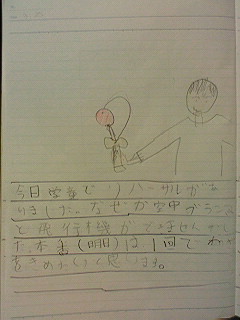 今日学童でリハーサルがあ
りました。なぜか空中ブランコ
と飛行機ができませんでし
た。本番(明日)は1回でわざ
をきめたいと思います。